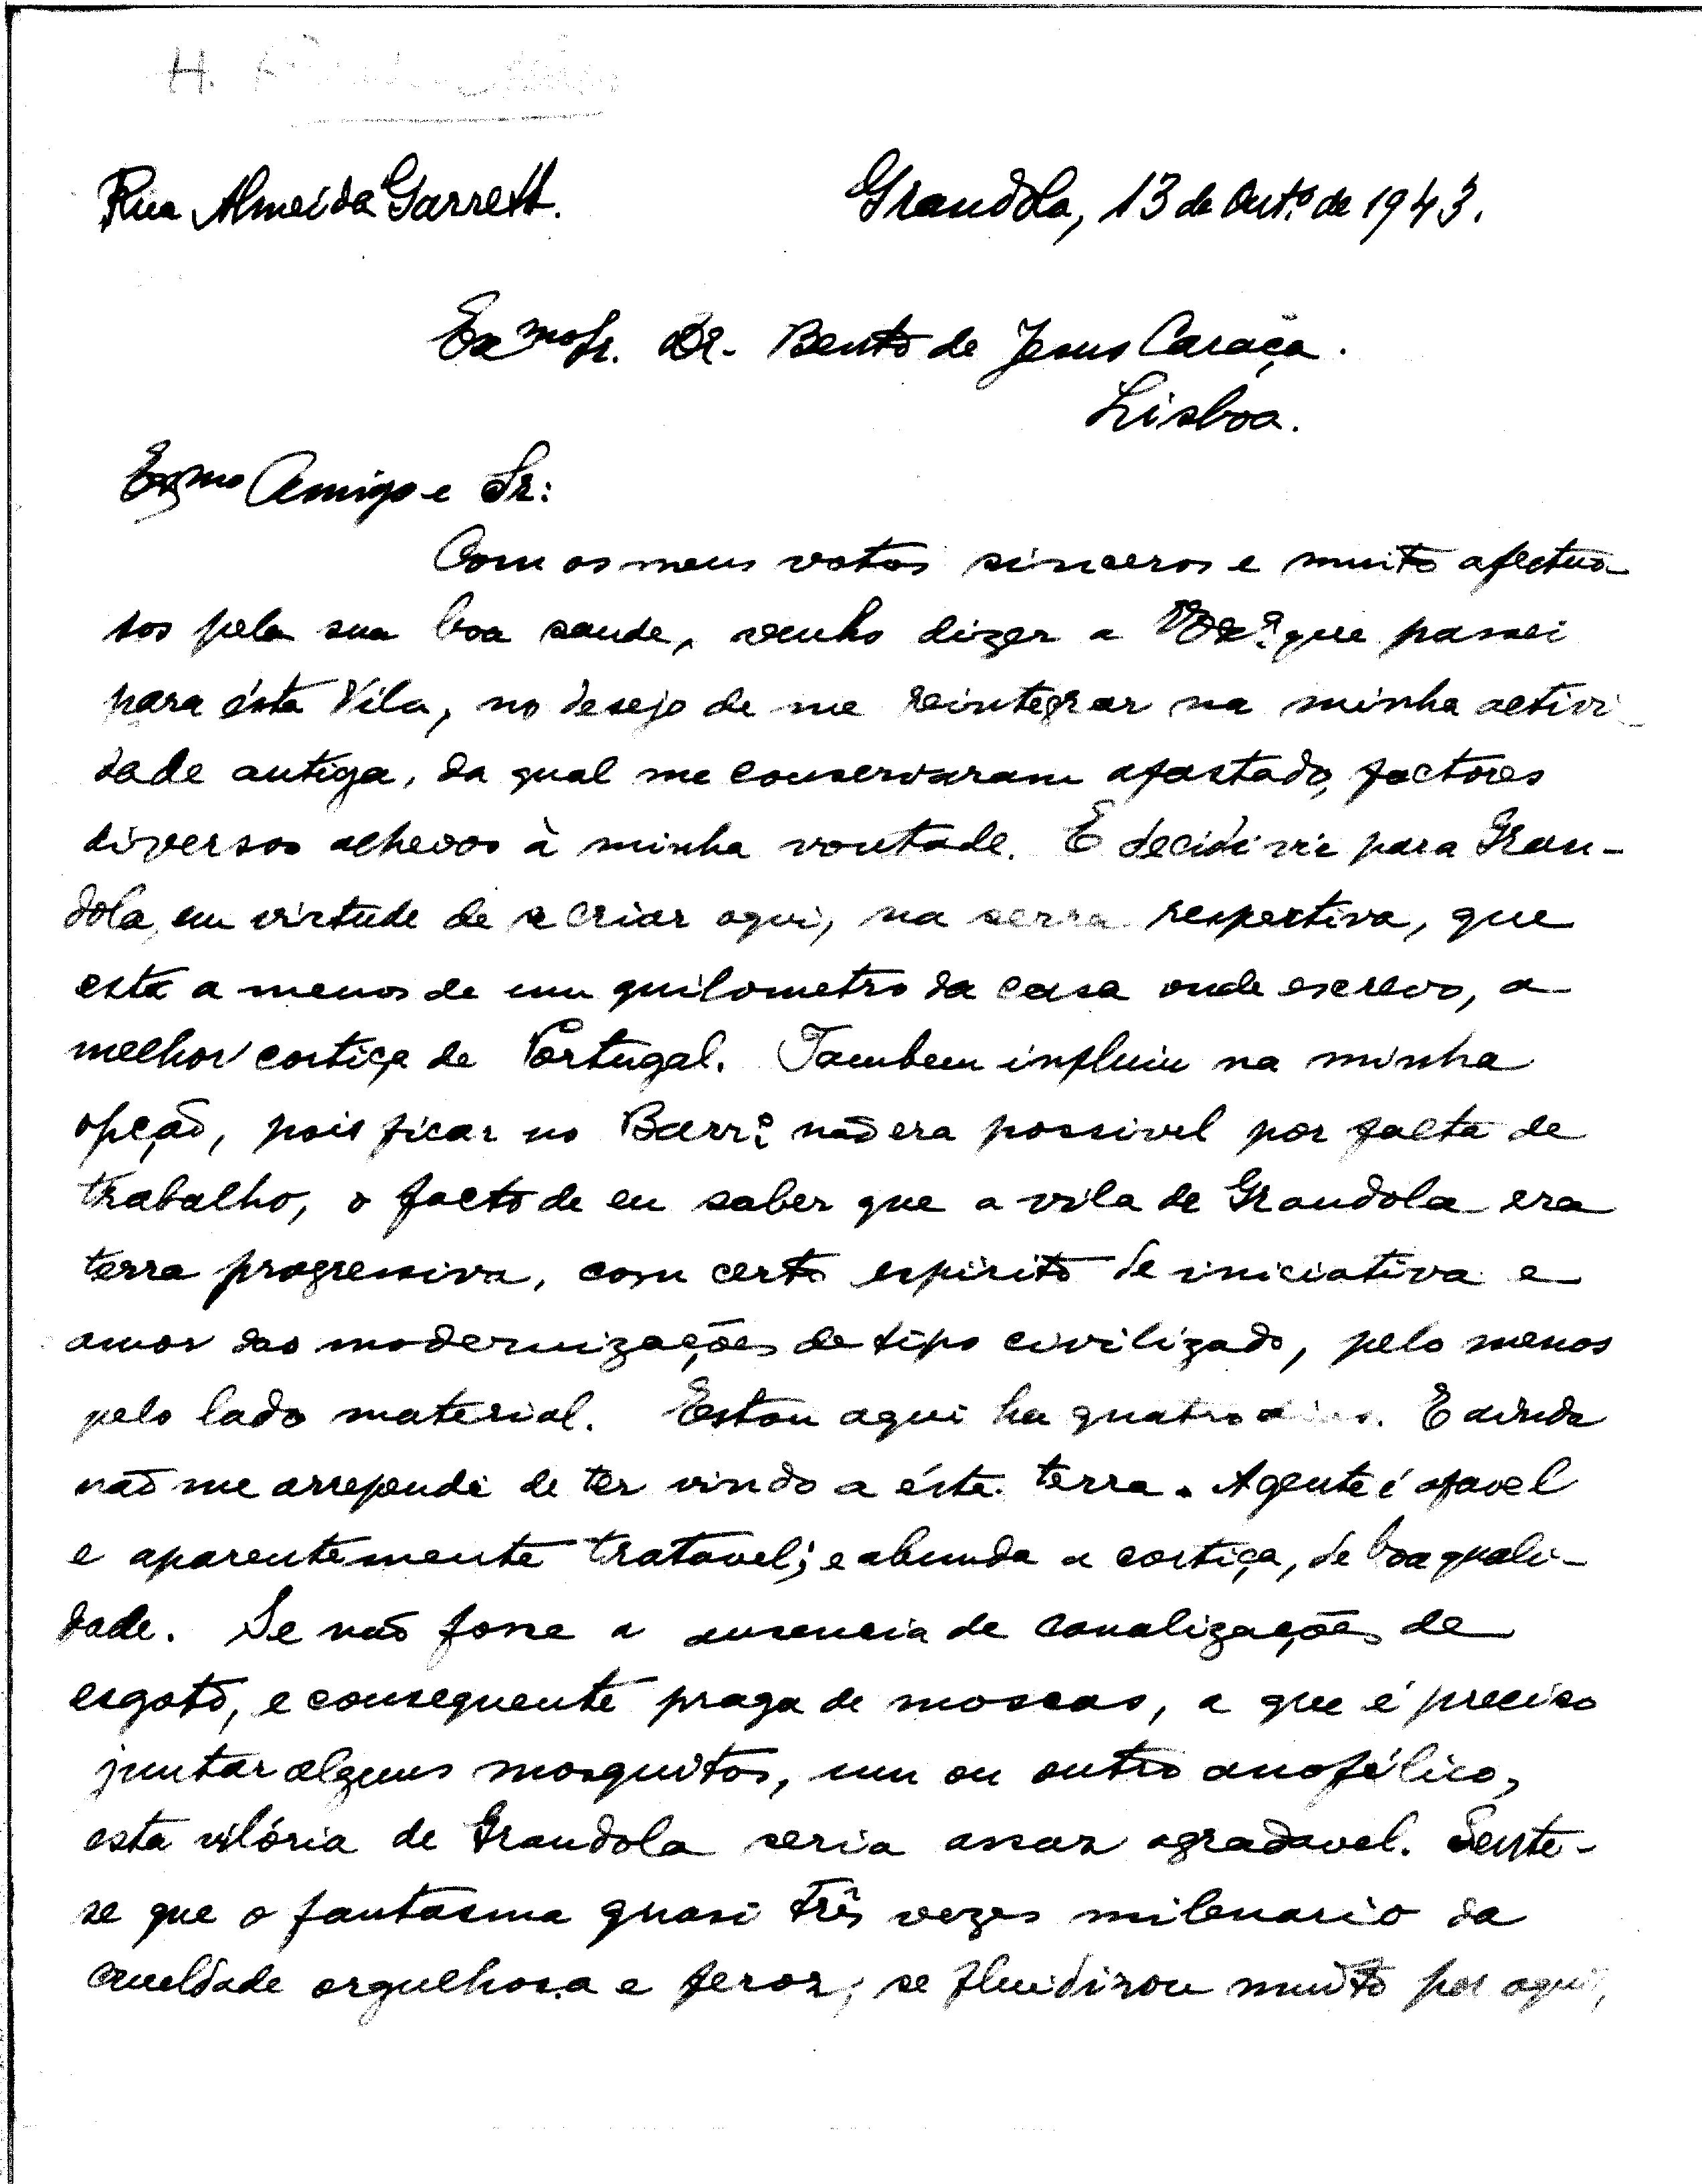 H.
Rua Almeida Garrett. Grandola, 13 de Outº de 1943.
Exmo Sr. Dr. Bento de Jesus Caraça.
Lisboa.
Exmo Amigo e Sr:
Com os meus votos sinceros e muito afectuo-
sos pela sua boa saude, venho dizer a V Exª que passei
para ésta Vila, no desejo de me reintegrar na minha activi-
dade antiga, da qual me conservaram afastado, factores
diversos alheios à minha vontade. E decidi vir para Gran-
dola, em virtude de se criar aqui, na serra respectiva, que
está a menos de um quilometro da casa onde escrevo, a
melhor cortiça de Portugal. Tambem influiu na minha
opção, pois ficar no Barrº não era possivel por falta de
trabalho, o facto de eu saber que a vila de Grandola era
terra progressiva, com certo espirito de iniciativa e
amor das modernizações de tipo civilizado, pelo menos
pelo lado material. Estou aqui ha quatro dias. E ainda
não me arrependi de ter vindo a ésta terra. A gente é afavel
e aparentemente tratavel; e abunda a cortiça, de boa quali-
dade. Se não fosse a ausencia de canalizações de
esgoto, e consequente praga de moscas, a que é preciso
juntar alguns mosquitos, um ou outro anofélico,
esta vilória de Grandola seria assaz agradavel. Sente-
se que o fantasma quasi três vezes milenario da
crueldade orgulhosa e feroz, se fluidizou muito por aqui,